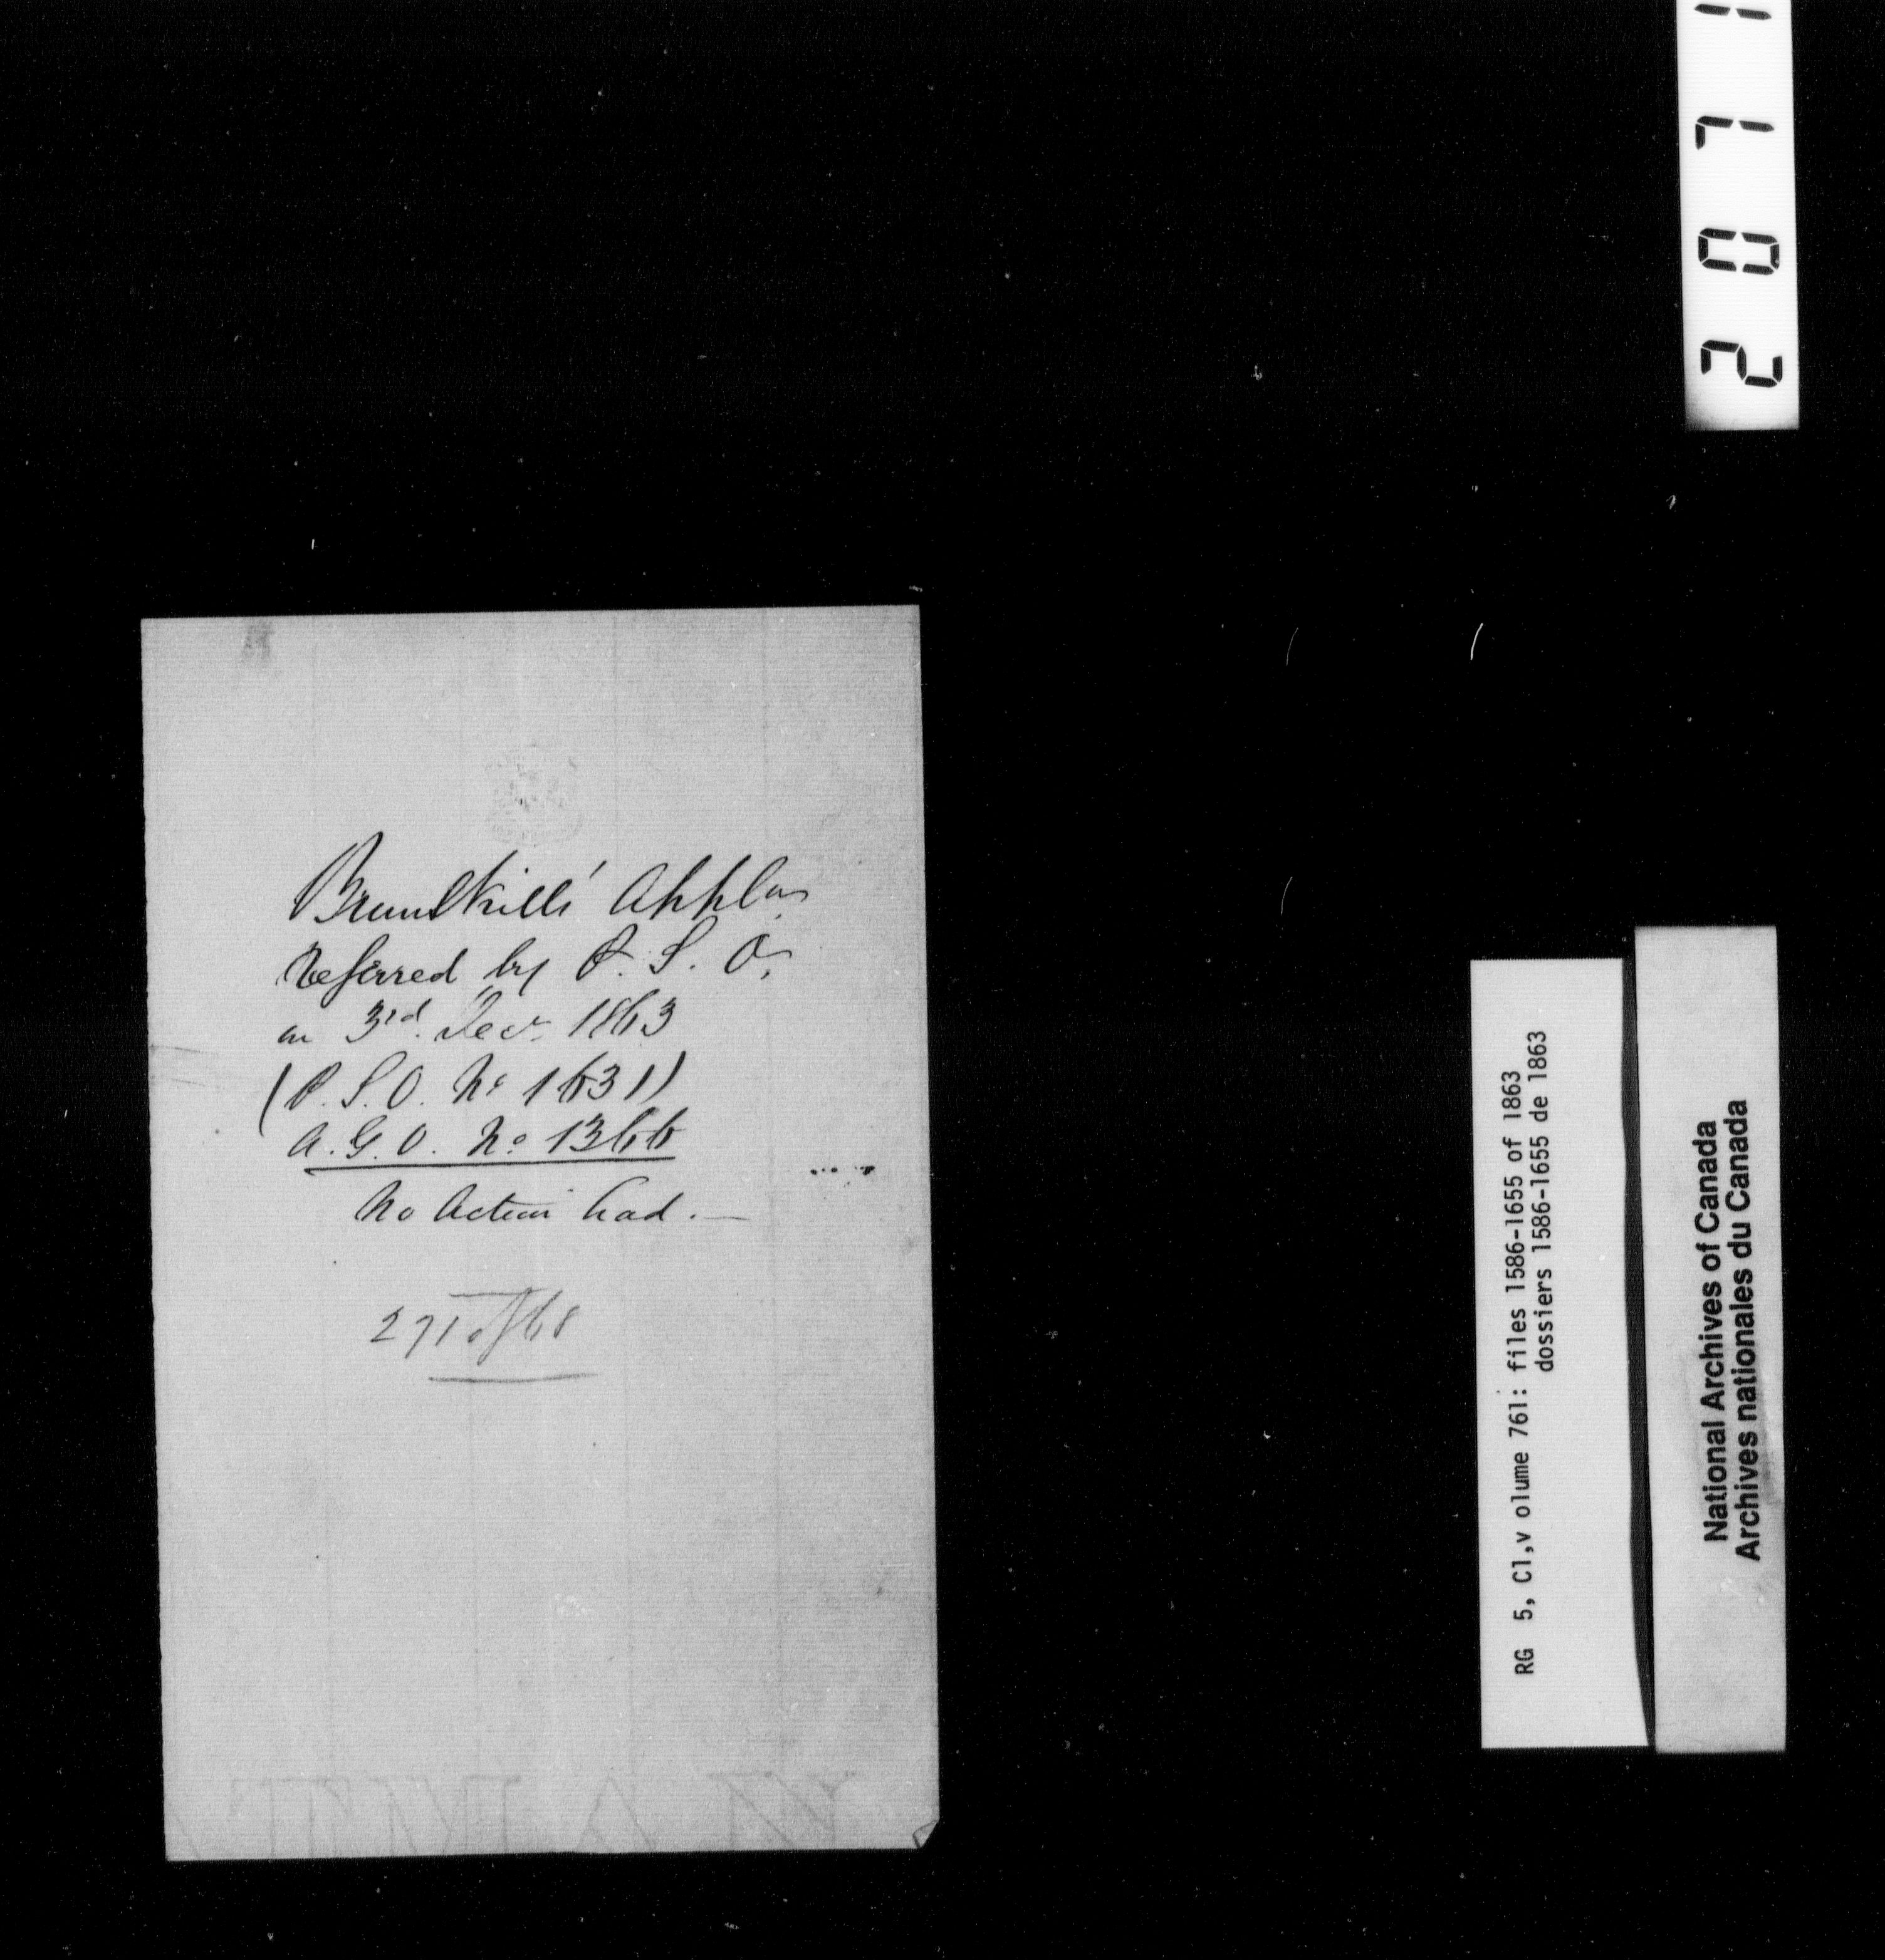 Brunskills' Appln
referred by P. S. O.
on 3rd. Decr. 1863
(P. S. O. No 1631)
A. G. O. No 1366
No Action had. —
271 of /68
RG 5, C1,v olume 761: files 1586-1655 of 1863
dossiers 1586-1655 de 1863
National Archives of Canada
Archives nationales du Canada
2071